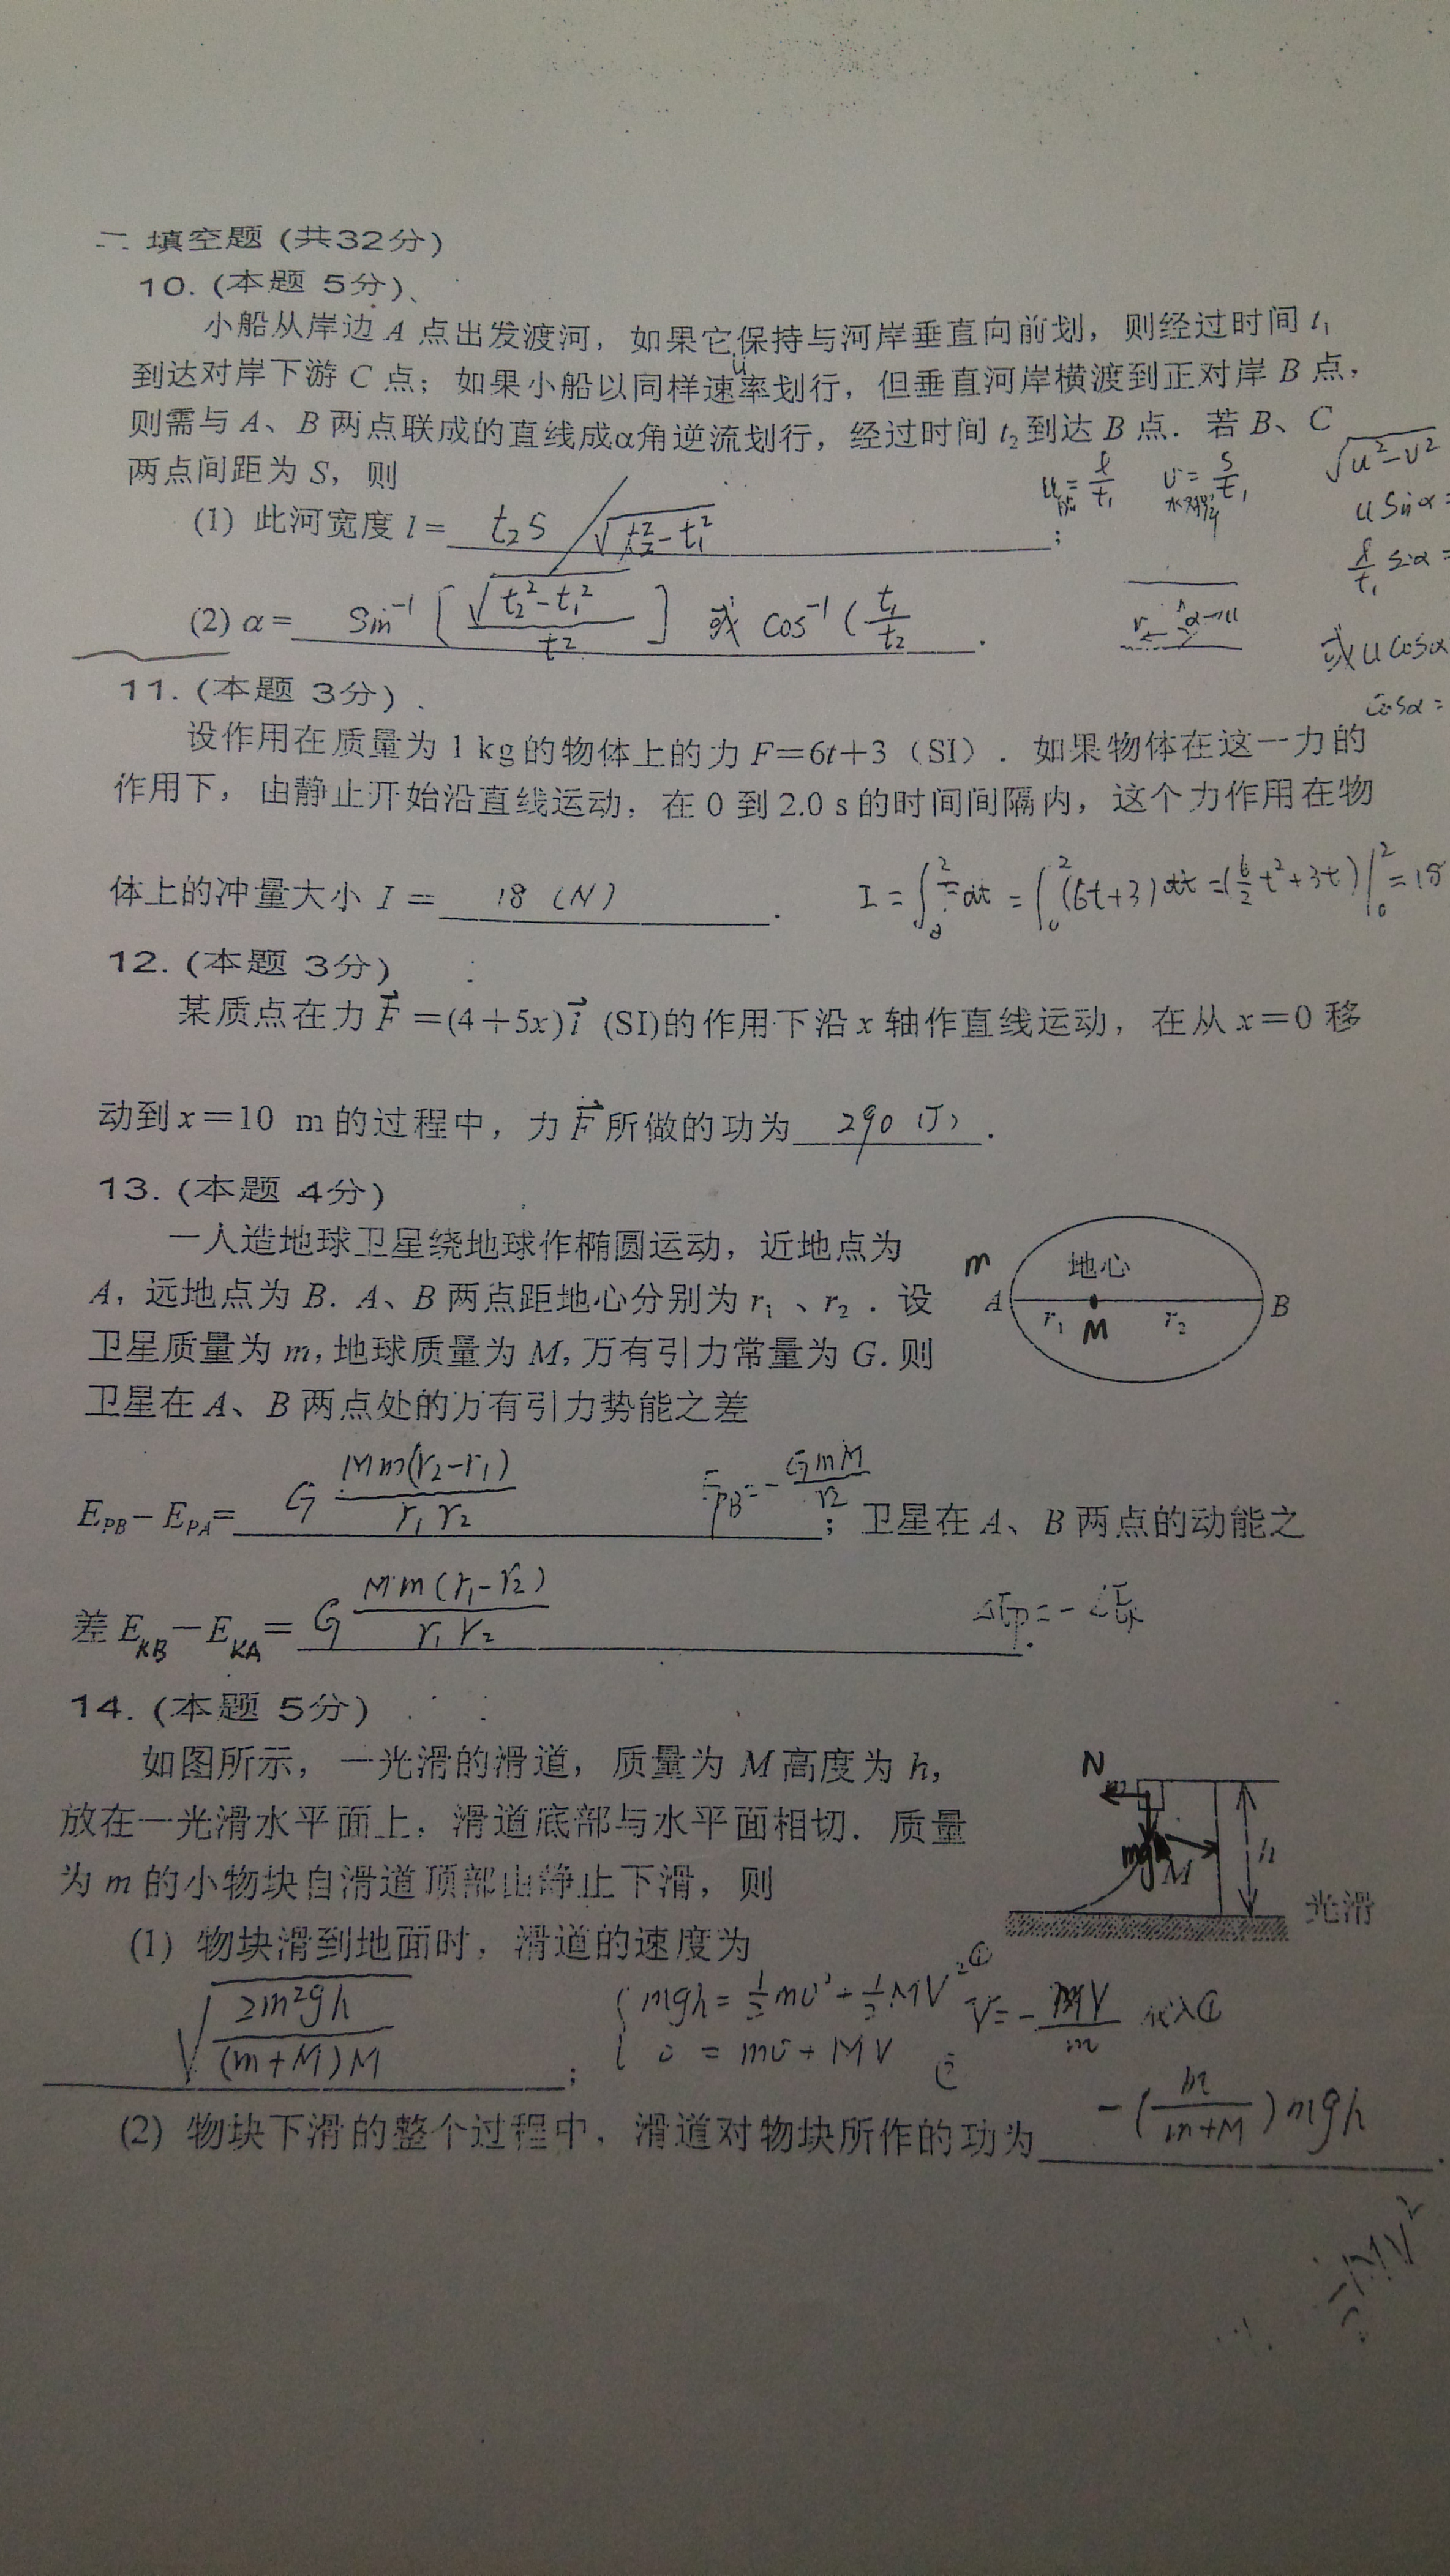 二 填空题 (共32分)
10. (本题 5分)、
小船从岸边 A 点出发渡河，如果它保持与河岸垂直向前划，则经过时间 t₁
到达对岸下游 C 点；如果小船以同样速率划行，但垂直河岸横渡到正对岸 B 点，
u
则需与 A、B 两点联成的直线成α角逆流划行，经过时间 t₂ 到达 B 点．若 B、C
两点间距为 S，则
u = l/t₁ v = S/t₁ √(u²-v²)
(1) 此河宽度 l = t₂S / √(t₂²-t₁²) ;
u sinα =
l/t₁ sinα =
(2) α = Sin⁻¹ [ √(t₂²-t₁²) / t₂ ] 或 cos⁻¹ (t₁/t₂ .
或 u cosα
cosα =
11. (本题 3分)
设作用在质量为 1 kg 的物体上的力 F＝6t＋3（SI）．如果物体在这一力的
作用下，由静止开始沿直线运动，在 0 到 2.0 s 的时间间隔内，这个力作用在物
体上的冲量大小 I＝ 18 (N) . I = ∫₀² F dt = ∫₀² (6t+3) dt = (6/2 t² + 3t)|₀² = 18
12. (本题 3分)
某质点在力 F⃗ ＝(4＋5x)i⃗ (SI)的作用下沿 x 轴作直线运动，在从 x＝0 移
动到 x＝10 m 的过程中，力 F⃗ 所做的功为 290 (J) .
13. (本题 4分)
一人造地球卫星绕地球作椭圆运动，近地点为
A，远地点为 B．A、B 两点距地心分别为 r₁ 、r₂ ．设
卫星质量为 m，地球质量为 M，万有引力常量为 G．则
卫星在 A、B 两点处的万有引力势能之差
m 地心
A r₁ M r₂ B
E_PB－E_PA= G Mm(r₂-r₁)/(r₁r₂) E_PB = - GmM/r₂ ；卫星在 A、B 两点的动能之
差 E_KB－E_KA＝ G Mm(r₁-r₂)/(r₁r₂) . ΔE_p = - ΔE_k
14. (本题 5分)
如图所示，一光滑的滑道，质量为 M 高度为 h，
放在一光滑水平面上，滑道底部与水平面相切．质量
为 m 的小物块自滑道顶部由静止下滑，则
N
m
mg M h
光滑
(1) 物块滑到地面时，滑道的速度为
√(2m²gh / (m+M)M) ;
mgh = ½mv² + ½MV² ①
0 = mv + MV ②
v = - MV/m 代入①
(2) 物块下滑的整个过程中，滑道对物块所作的功为 -(m/(m+M))mgh .
MV²